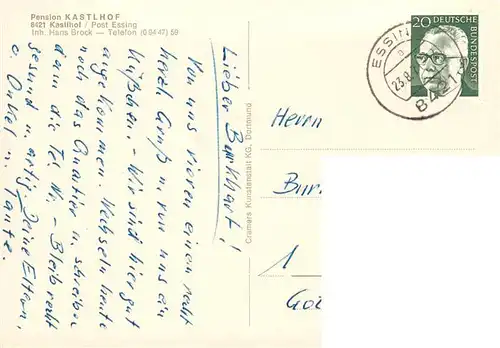 Pension KASTLHOF
8421 Kastlhof / Post Essing
Inh. Hans Brock — Telefon (0 94 47) 59
Lieber Burkhart!
Von uns vieren einen recht
herzl. Gruß u. von uns ein
Küßchen. – Wir sind hier gut
angekommen. Wechseln heute
noch das Quartier u. schreiben
dann die Tel. Nr. – Bleib recht
gesund u. artig, Deine Eltern,
O. Onkel u. Tante.
Cramers Kunstanstalt KG, Dortmund
20 DEUTSCHE BUNDESPOST
ESSIN
23.8.
8421
Herrn
Bur
1